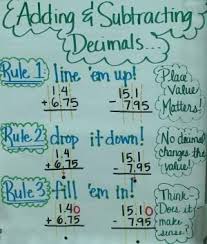 Adding & Subtracting
Decimals...
Rule 1: line 'em up!
1.4
+ 6.75
15.1
- 7.95
Place
Value
Matters!
Rule 2: drop it down!
1.4
+ 6.75
15.1
- 7.95
No decimal
changes the
value!
Rule 3: fill 'em in!
1.40
+ 6.75
15.10
- 7.95
Think-
Does it
make
sense?